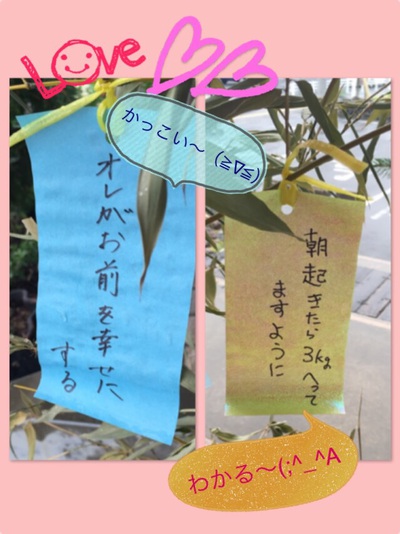 Love
かっこい〜 (≧∇≦)
オレがお前を幸せに
する
朝起きたら3kgへって
ますように
わかる〜(;^_^A